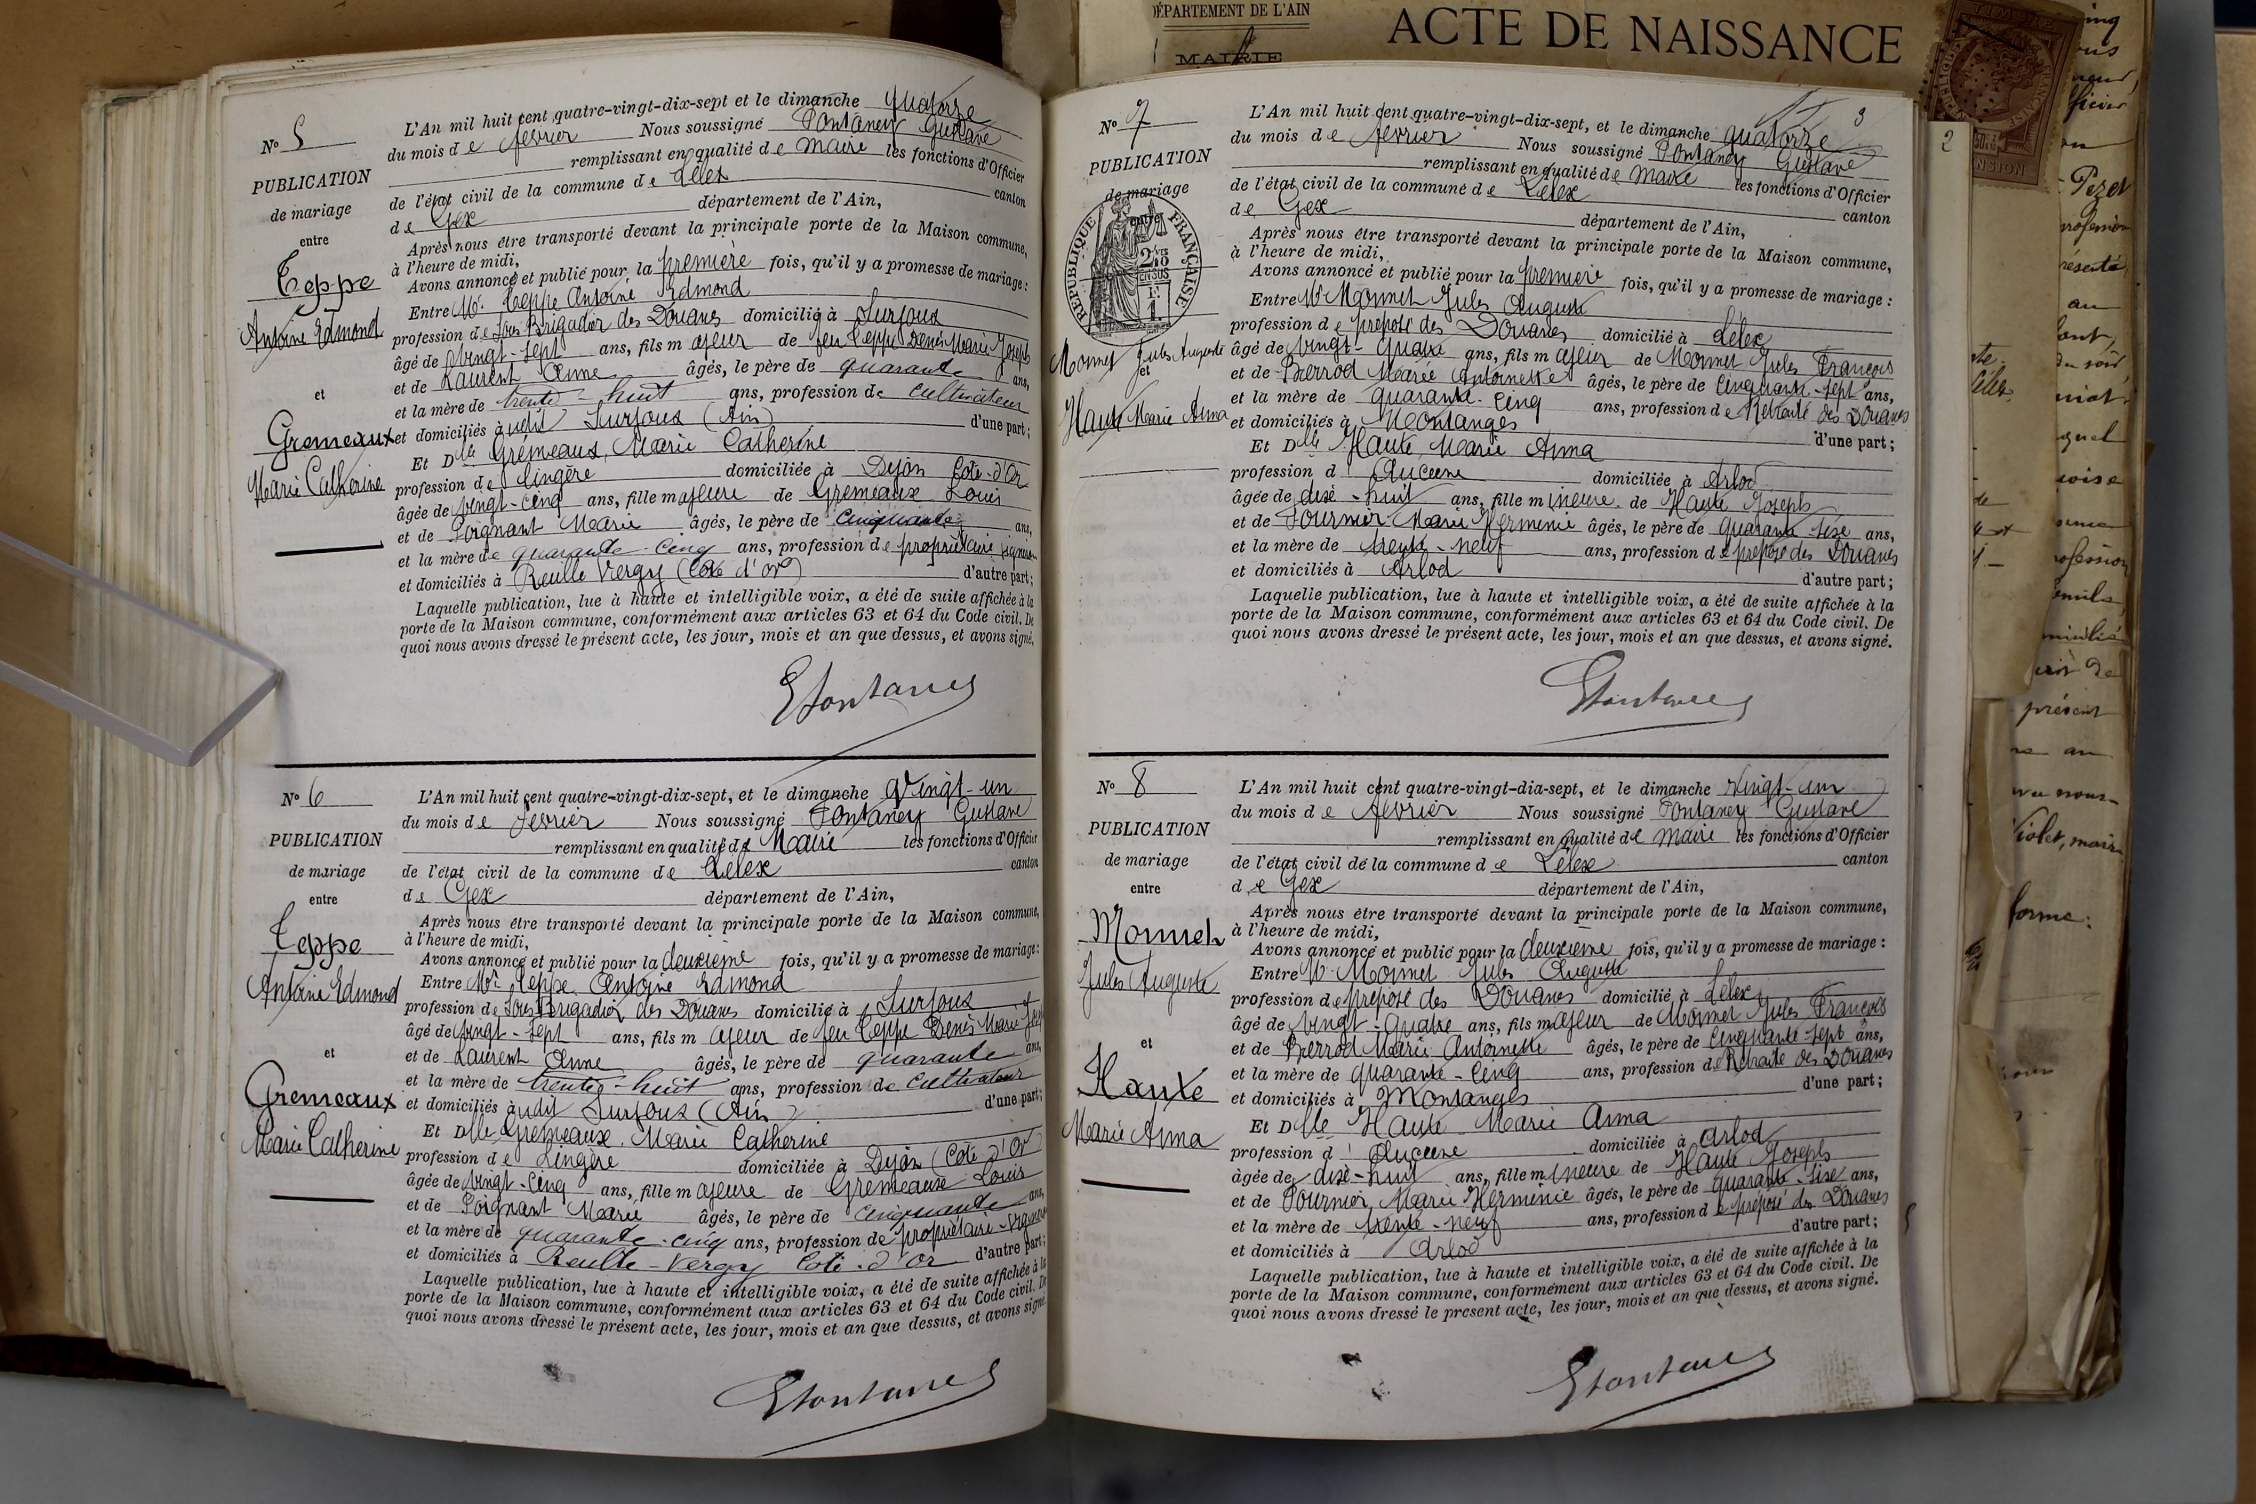 N° 5
PUBLICATION
de mariage
entre
Teppe
Antoine Edmond
et
Gremeaux
Marie Catherine
L'An mil huit cent quatre-vingt-dix-sept et le dimanche quatorze
du mois de février Nous soussigné Fontaney Gustave
remplissant en qualité de maire les fonctions d'Officier
de l'état civil de la commune de Lélex canton
de Gex département de l'Ain,
Après nous être transporté devant la principale porte de la Maison commune,
à l'heure de midi,
Avons annoncé et publié pour la première fois, qu'il y a promesse de mariage :
Entre Mr. Teppe Antoine Edmond
profession de Sous Brigadier des Douanes domicilié à Surjoux
âgé de vingt-sept ans, fils majeur de feu Teppe Denis Marie Joseph
et de Laurent Anne âgés, le père de quarante ans,
et la mère de trente-huit ans, profession de cultivateur
et domiciliés à udit Surjoux (Ain) d'une part ;
Et Dlle Grémeaux, Marie Catherine
profession de lingère domiciliée à Dijon Côte-d'Or
âgée de vingt-cinq ans, fille majeure de Gremeaux Louis
et de Poignant Marie âgés, le père de cinquante ans,
et la mère de quarante-cinq ans, profession de propriétaire vigneron
et domiciliés à Reulle Vergy (Côte d'Or) d'autre part ;
Laquelle publication, lue à haute et intelligible voix, a été de suite affichée à la
porte de la Maison commune, conformément aux articles 63 et 64 du Code civil. De
quoi nous avons dressé le présent acte, les jour, mois et an que dessus, et avons signé.
GFontaney
N° 6
PUBLICATION
de mariage
entre
Teppe
Antoine Edmond
et
Gremeaux
Marie Catherine
L'An mil huit cent quatre-vingt-dix-sept, et le dimanche Vingt-un
du mois de février Nous soussigné Fontaney Gustave
remplissant en qualité de Maire les fonctions d'Officier
de l'état civil de la commune de Lélex canton
de Gex département de l'Ain,
Après nous être transporté devant la principale porte de la Maison commune,
à l'heure de midi,
Avons annoncé et publié pour la deuxième fois, qu'il y a promesse de mariage :
Entre Mr. Teppe Antoine Edmond
profession de Sous Brigadier des Douanes domicilié à Surjoux
âgé de vingt-sept ans, fils majeur de feu Teppe Denis Marie
et de Laurent Anne âgés, le père de quarante ans,
et la mère de trente-huit ans, profession de cultivateur
et domiciliés à udit Surjoux (Ain) d'une part ;
Et Dlle Gremeaux, Marie Catherine
profession de Lingère domiciliée à Dijon (Côte d'Or
âgée de vingt-cinq ans, fille majeure de Gremeaux Louis
et de Poignant Marie âgés, le père de cinquante ans,
et la mère de quarante-cinq ans, profession de propriétaire-vigneron
et domiciliés à Reulle-Vergy Côte-d'Or d'autre part ;
Laquelle publication, lue à haute et intelligible voix, a été de suite affichée à la
porte de la Maison commune, conformément aux articles 63 et 64 du Code civil. De
quoi nous avons dressé le présent acte, les jour, mois et an que dessus, et avons signé
GFontaney
3
N° 7
PUBLICATION
de mariage
entre
RÉPUBLIQUE FRANÇAISE
Monnet Jules Auguste
et
Haute Marie Anna
L'An mil huit cent quatre-vingt-dix-sept, et le dimanche quatorze
du mois de février Nous soussigné Fontaney Gustave
remplissant en qualité de maire les fonctions d'Officier
de l'état civil de la commune de Lélex canton
de Gex département de l'Ain,
Après nous être transporté devant la principale porte de la Maison commune,
à l'heure de midi,
Avons annoncé et publié pour la première fois, qu'il y a promesse de mariage :
Entre Mr Monnet Jules Auguste
profession de préposé des Douanes domicilié à Lélex
âgé de vingt-quatre ans, fils majeur de Monnet Jules François
et de Berrod Marie Antoinette âgés, le père de cinquante-sept ans,
et la mère de quarante-cinq ans, profession de Retraité des Douanes
et domiciliés à Montanges d'une part ;
Et Dlle Haute Marie Anna
profession d' Aucune domiciliée à Arlod
âgée de dix-huit ans, fille mineure de Haute Joseph
et de Fournier Marie Herminie âgés, le père de quarante-six ans,
et la mère de trente-neuf ans, profession de préposé des Douanes
et domiciliés à Arlod d'autre part ;
Laquelle publication, lue à haute et intelligible voix, a été de suite affichée à la
porte de la Maison commune, conformément aux articles 63 et 64 du Code civil. De
quoi nous avons dressé le présent acte, les jour, mois et an que dessus, et avons signé.
GFontaney
N° 8
PUBLICATION
de mariage
entre
Monnet
Jules Auguste
et
Haute
Marie Anna
L'An mil huit cent quatre-vingt-dia-sept, et le dimanche vingt-un
du mois de février Nous soussigné Fontaney Gustave
remplissant en qualité de maire les fonctions d'Officier
de l'état civil de la commune de Lélex canton
de Gex département de l'Ain,
Après nous être transporté devant la principale porte de la Maison commune,
à l'heure de midi,
Avons annoncé et publié pour la deuxième fois, qu'il y a promesse de mariage :
Entre Mr Monnet Jules Auguste
profession de préposé des Douanes domicilié à Lélex
âgé de vingt-quatre ans, fils majeur de Monnet Jules François
et de Berrod Marie Antoinette âgés, le père de cinquante-sept ans,
et la mère de quarante-cinq ans, profession de Retraité des Douanes
et domiciliés à Montanges d'une part ;
Et Dlle Haute Marie Anna
profession d' Aucune domiciliée à Arlod
âgée de dix-huit ans, fille mineure de Haute Joseph
et de Fournier Marie Herminie âgés, le père de quarante-six ans,
et la mère de trente-neuf ans, profession de préposé des Douanes
et domiciliés à Arlod d'autre part ;
Laquelle publication, lue à haute et intelligible voix, a été de suite affichée à la
porte de la Maison commune, conformément aux articles 63 et 64 du Code civil. De
quoi nous avons dressé le présent acte, les jour, mois et an que dessus, et avons signé.
GFontaney
DÉPARTEMENT DE L'AIN
MAIRIE
ACTE DE NAISSANCE
2
Pezet
Violet, maire
forme :